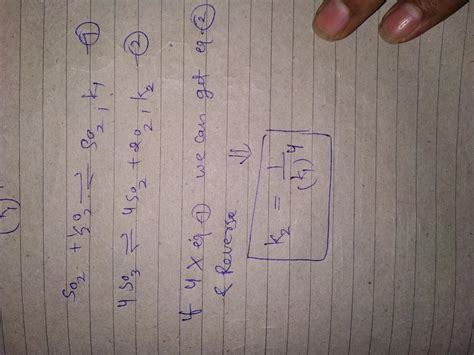 So₂ + ½o₂ ⇌ So₂, k₁ —①
4So₃ ⇌ 4So₂ + 2o₂, k₂ —②
If 4 × eq ① we can get eq. ②
& Reverse
⇓
k₂ = 1/(k₁)⁴